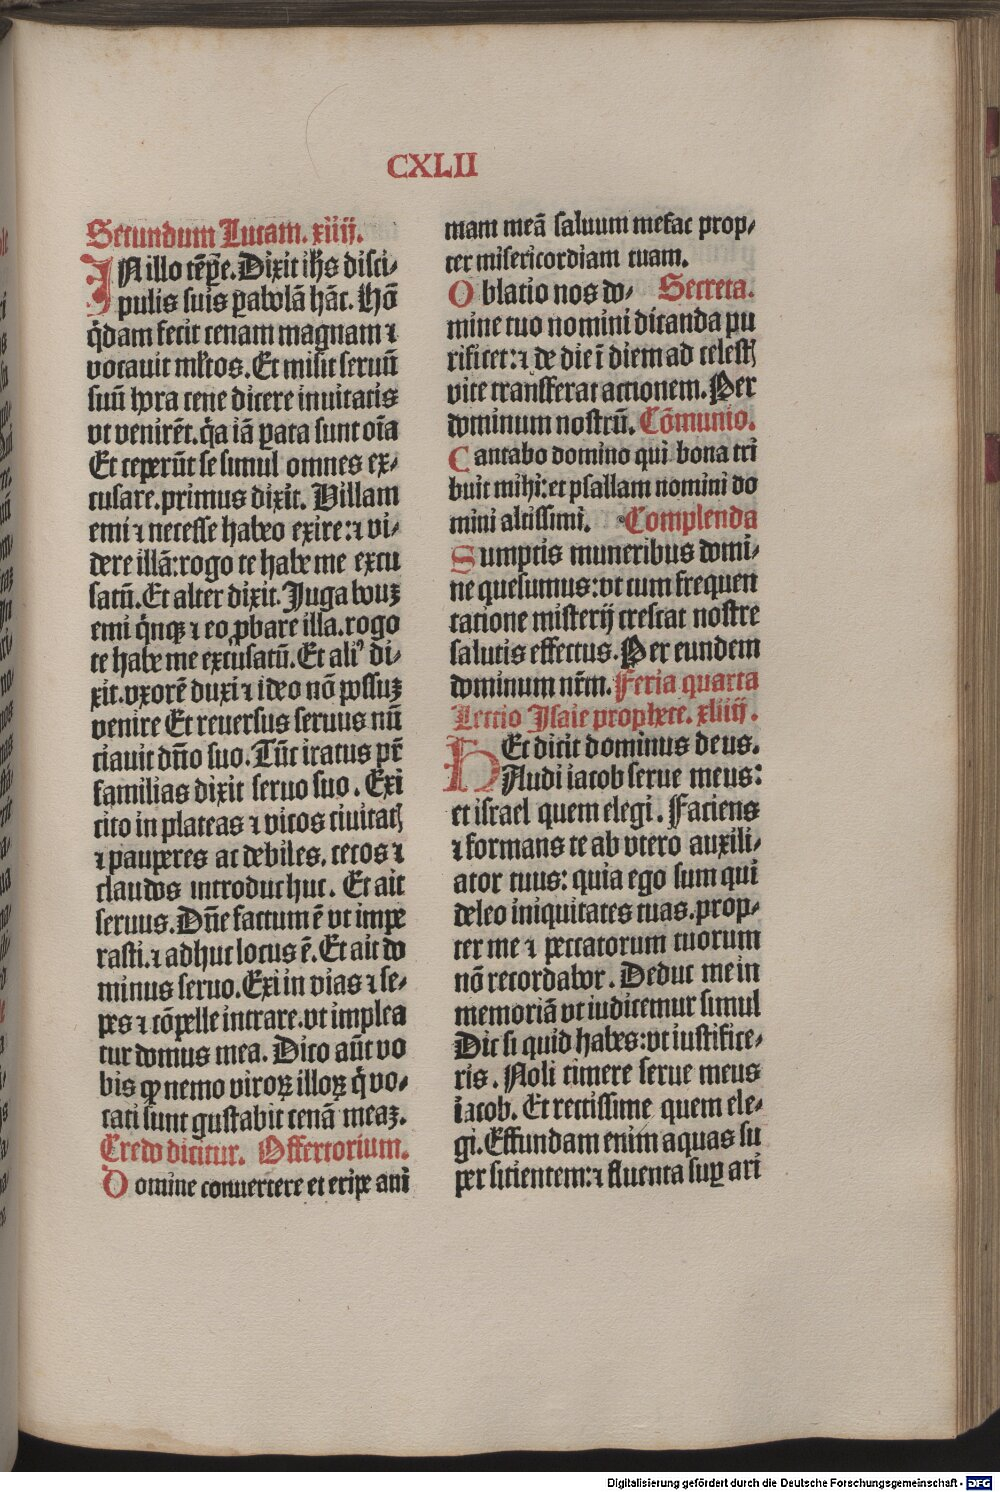 CXLII
Secundum Lucam. xiiij.
IN illo tēꝑe. Dixit ihs disci⸗
pulis suis ꝑabolā hāc. Hō
q̇dam fecit cenam magnam ⁊
vocauit ml̓tos. Et misit seruū
suū hora cene dicere inuitatis
vt venirēt. q̇a iā ꝑata sunt oīa
Et ceperūt se simul omnes ex⸗
cusare. primus dixit. Villam
emi ⁊ necesse habeo exire: ⁊ vi⸗
dere illā: rogo te habe me excu
satū. Et alter dixit. Juga bouꝫ
emi q̇nqꝫ ⁊ eo ꝓbare illa. rogo
te habe me excusatū. Et aliꝰ di⸗
xit. vxorē duxi ⁊ ideo nō possuꝫ
venire Et reuersus seruus nū
ciauit dn̄o suo. Tūc iratus pr̄
familias dixit seruo suo. Exi
cito in plateas ⁊ vicos ciuitatꝭ
⁊ pauperes ac debiles, cecos ⁊
claudos introduc huc. Et ait
seruus. Dn̄e factum ē vt impe
rasti. ⁊ adhuc locus ē. Et ait do
minus seruo. Exi in vias ⁊ se⸗
pes ⁊ cōpelle intrare. vt implea
tur domus mea. Dico aūt vo
bis ꝙ nemo viroꝝ illoꝝ q̇ vo⸗
cati sunt gustabit cenā meaꝫ.
Credo dicitur. Offertorium.
Domine conuertere et eripe ani
mam meā saluum me fac prop⸗
ter misericordiam tuam.
Oblatio nos do⸗ Secreta.
mine tuo nomini dicanda pu
rificet: ⁊ de die ī diem ad celestꝭ
vite transferat actionem. Per
dominum nostrū. Cōmunio.
Cantabo domino qui bona tri
buit mihi: et psallam nomini do
mini altissimi. Complenda
Sumptis muneribus domi⸗
ne quesumus: vt cum frequen
tatione misterij crescat nostre
salutis effectus. Per eundem
dominum nr̄m. Feria quarta
Lectio Isaie prophete. xliiij.
HEc dicit dominus deus.
Audi iacob serue meus:
et israel quem elegi. Faciens
⁊ formans te ab vtero auxili⸗
ator tuus: quia ego sum qui
deleo iniquitates tuas. prop⸗
ter me ⁊ peccatorum tuorum
nō recordabor. Deduc me in
memoriā vt iudicemur simul
Dic si quid habes: vt iustifice⸗
ris. Noli timere serue meus
iacob. Et rectissime quem ele⸗
gi. Effundam enim aquas su
per sitientem: ⁊ fluenta suꝑ ari
Digitalisierung gefördert durch die Deutsche Forschungsgemeinschaft - DFG